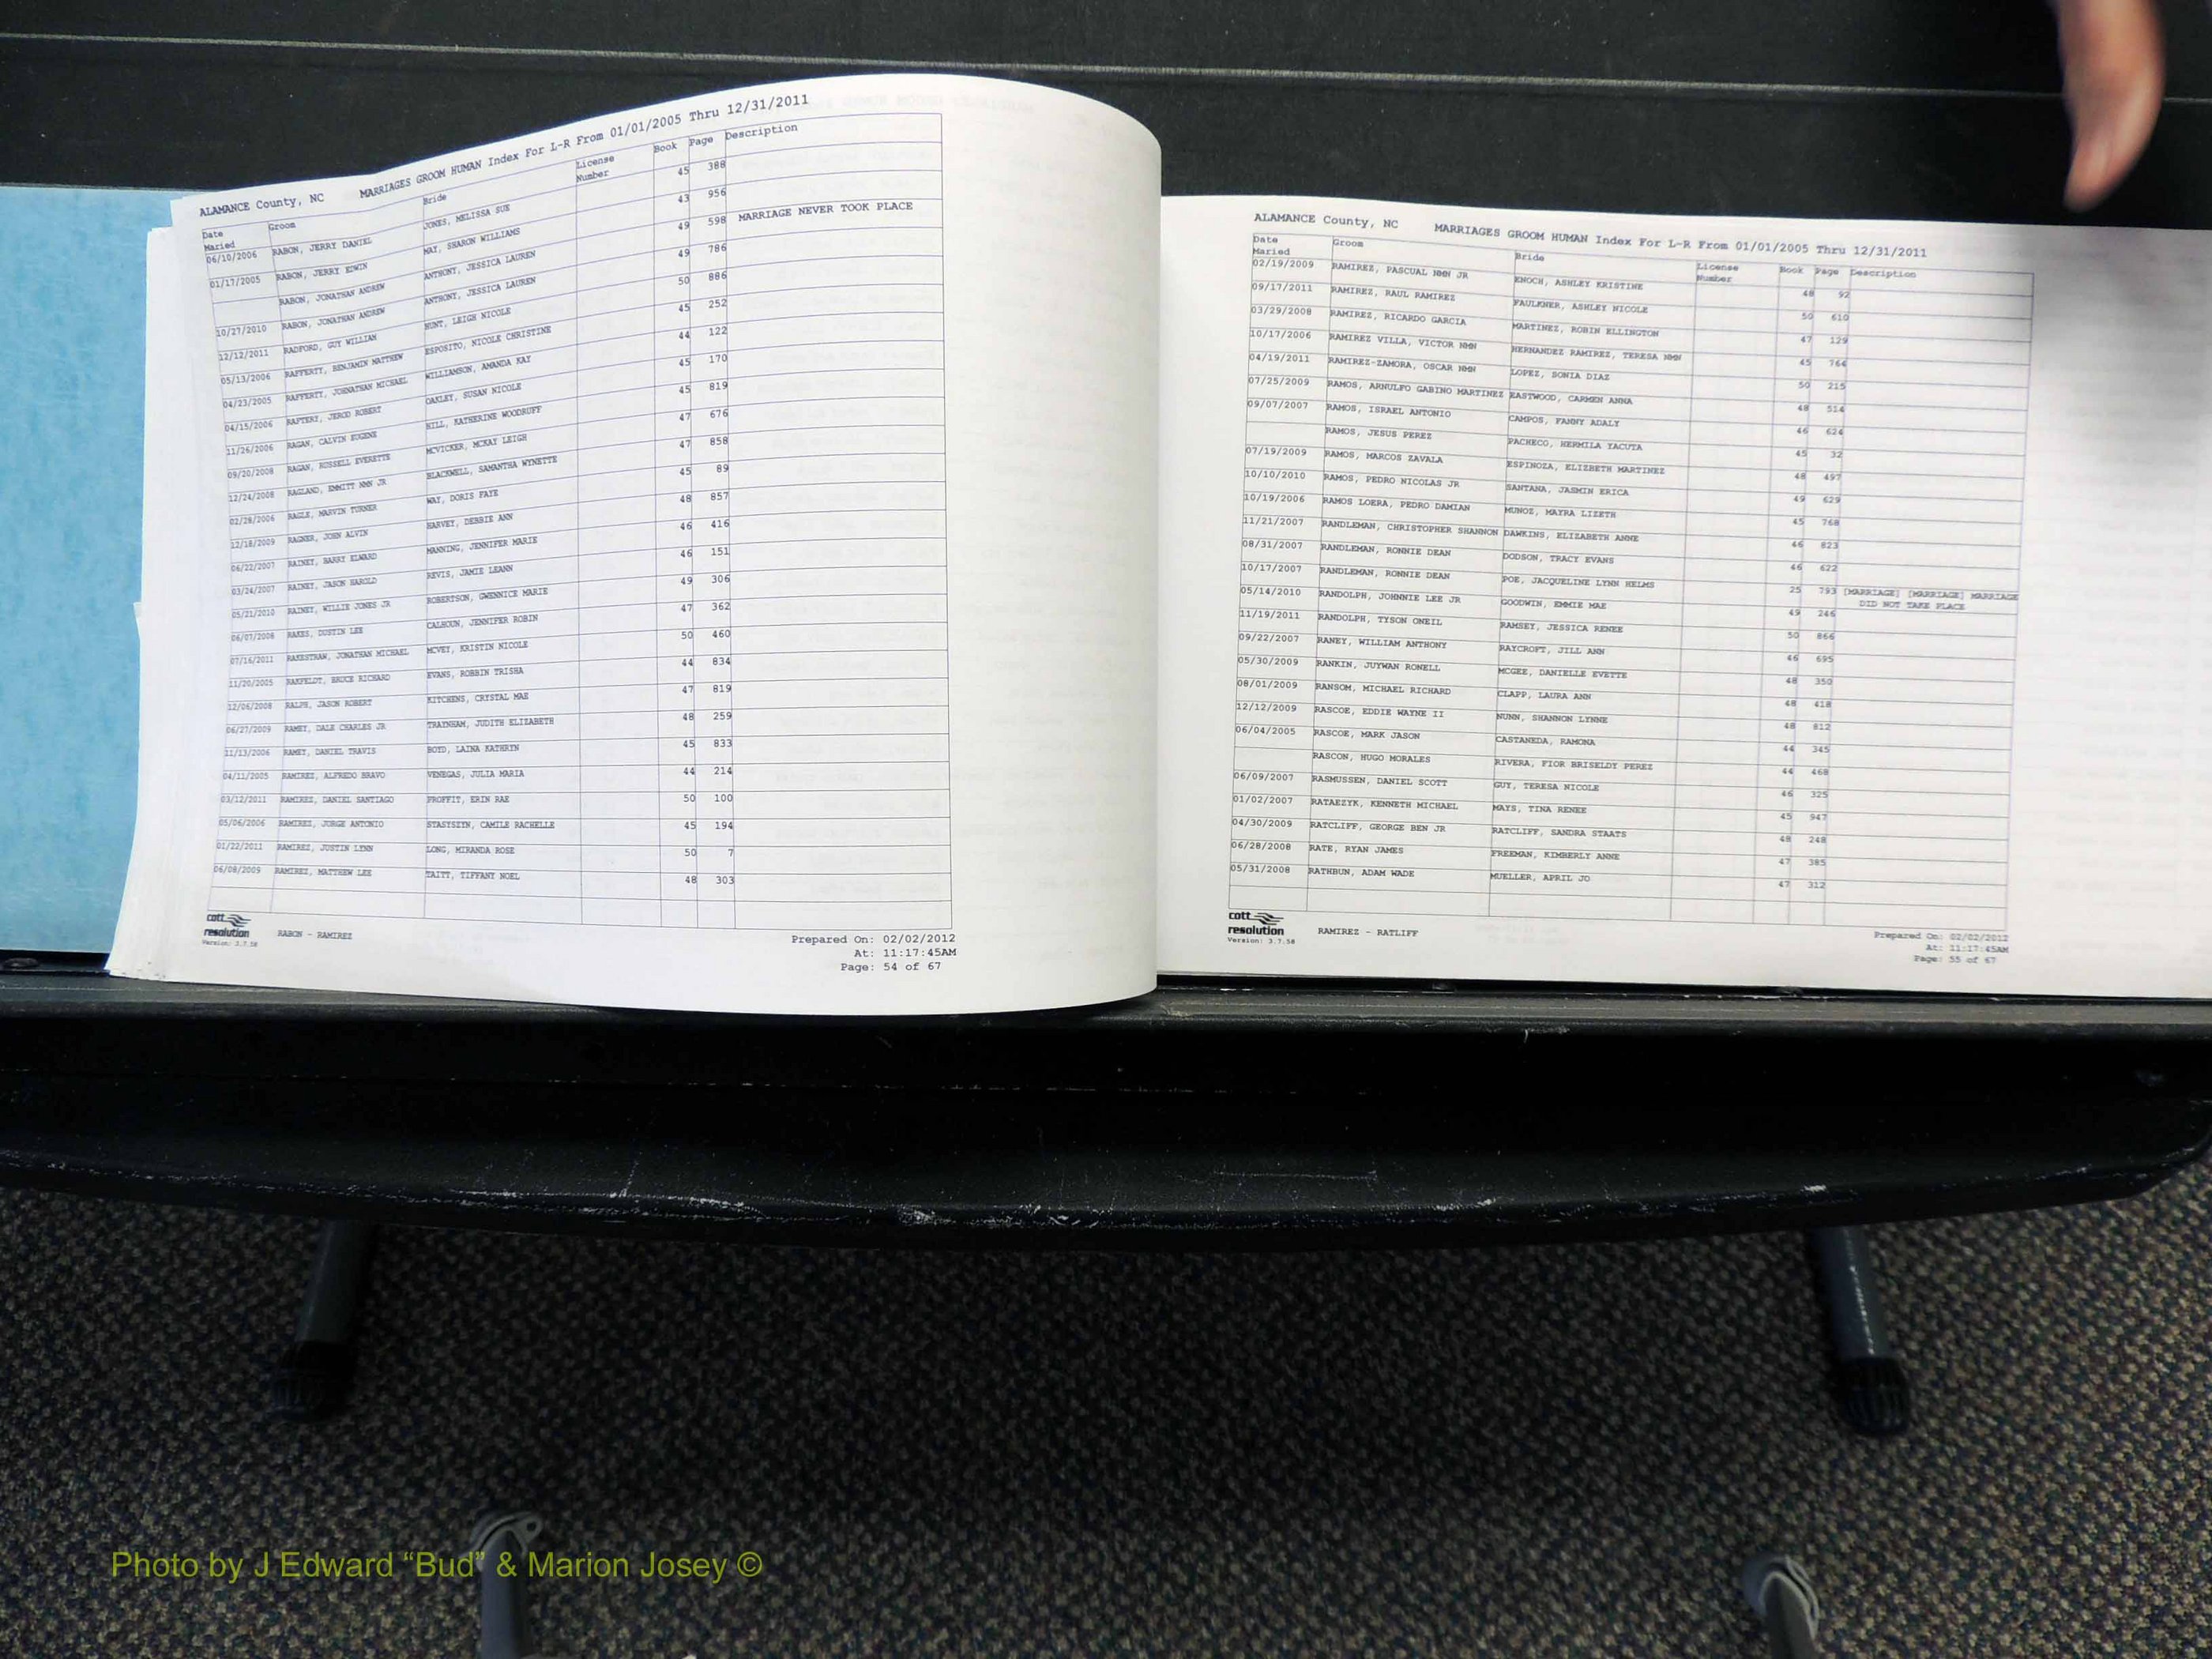 ALAMANCE County, NC MARRIAGES GROOM HUMAN Index For L-R From 01/01/2005 Thru 12/31/2011
Date Maried Groom Bride License Number Book Page Description
06/10/2006 RABON, JERRY DANIEL JONES, MELISSA SUE 45 388
01/17/2005 RABON, JERRY EDWIN MAY, SHARON WILLIAMS 43 956
RABON, JONATHAN ANDREW ANTHONY, JESSICA LAUREN 49 598 MARRIAGE NEVER TOOK PLACE
10/27/2010 RABON, JONATHAN ANDREW ANTHONY, JESSICA LAUREN 49 786
12/12/2011 RADFORD, GUY WILLIAM HUNT, LEIGH NICOLE 50 886
05/13/2006 RAFFERTY, BENJAMIN MATTHEW ESPOSITO, NICOLE CHRISTINE 45 252
04/23/2005 RAFFERTY, JOHNATHAN MICHAEL WILLIAMSON, AMANDA KAY 44 122
04/15/2006 RAFTERY, JEROD ROBERT OAKLEY, SUSAN NICOLE 45 170
11/26/2006 RAGAN, CALVIN EUGENE HILL, KATHERINE WOODRUFF 45 819
09/20/2008 RAGAN, RUSSELL EVERETTE MCVICKER, MCKAY LEIGH 47 676
12/24/2008 RAGLAND, EMMITT NMN JR BLACKWELL, SAMANTHA WYNETTE 47 858
02/28/2006 RAGLE, MARVIN TURNER WAY, DORIS FAYE 45 89
12/18/2009 RAGNER, JOHN ALVIN HARVEY, DEBBIE ANN 48 857
06/22/2007 RAINEY, BARRY EDWARD MANNING, JENNIFER MARIE 46 416
03/24/2007 RAINEY, JASON HAROLD REVIS, JAMIE LEANN 46 151
05/21/2010 RAINEY, WILLIE JONES JR ROBERTSON, GWENNICE MARIE 49 306
06/07/2008 RAKES, DUSTIN LEE CALHOUN, JENNIFER ROBIN 47 362
07/16/2011 RAKESTRAW, JONATHAN MICHAEL MCVEY, KRISTIN NICOLE 50 460
11/20/2005 RAKFELDT, BRUCE RICHARD EVANS, ROBBIN TRISHA 44 834
12/06/2008 RALPH, JASON ROBERT KITCHENS, CRYSTAL MAE 47 819
06/27/2009 RAMEY, DALE CHARLES JR TRAYNHAM, JUDITH ELIZABETH 48 259
11/13/2006 RAMEY, DANIEL TRAVIS BOYD, LAINA KATHRYN 45 833
04/11/2005 RAMIREZ, ALFREDO BRAVO VENEGAS, JULIA MARIA 44 214
03/12/2011 RAMIREZ, DANIEL SANTIAGO PROFFIT, ERIN RAE 50 100
05/06/2006 RAMIREZ, JORGE ANTONIO STASYSZYN, CAMILE RACHELLE 45 194
01/22/2011 RAMIREZ, JUSTIN LYNN LONG, MIRANDA ROSE 50 7
06/08/2009 RAMIREZ, MATTHEW LEE TAITT, TIFFANY NOEL 48 303
cott resolution
Version: 3.7.58
RABON - RAMIREZ
Prepared On: 02/02/2012
At: 11:17:45AM
Page: 54 of 67
ALAMANCE County, NC MARRIAGES GROOM HUMAN Index For L-R From 01/01/2005 Thru 12/31/2011
Date Maried Groom Bride License Number Book Page Description
02/19/2009 RAMIREZ, PASCUAL NMN JR ENOCH, ASHLEY KRISTINE 48 92
09/17/2011 RAMIREZ, RAUL RAMIREZ FAULKNER, ASHLEY NICOLE 50 610
03/29/2008 RAMIREZ, RICARDO GARCIA MARTINEZ, ROBIN ELLINGTON 47 129
10/17/2006 RAMIREZ VILLA, VICTOR NMN HERNANDEZ RAMIREZ, TERESA NMN 45 764
04/19/2011 RAMIREZ-ZAMORA, OSCAR NMN LOPEZ, SONIA DIAZ 50 215
07/25/2009 RAMOS, ARNULFO GABINO MARTINEZ EASTWOOD, CARMEN ANNA 48 514
09/07/2007 RAMOS, ISRAEL ANTONIO CAMPOS, FANNY ADALY 46 624
RAMOS, JESUS PEREZ PACHECO, HERMILA YACUTA 45 32
07/19/2009 RAMOS, MARCOS ZAVALA ESPINOZA, ELIZBETH MARTINEZ 48 497
10/10/2010 RAMOS, PEDRO NICOLAS JR SANTANA, JASMIN ERICA 49 629
10/19/2006 RAMOS LOERA, PEDRO DAMIAN MUNOZ, MAYRA LIZETH 45 768
11/21/2007 RANDLEMAN, CHRISTOPHER SHANNON DAWKINS, ELIZABETH ANNE 46 823
08/31/2007 RANDLEMAN, RONNIE DEAN DODSON, TRACY EVANS 46 622
10/17/2007 RANDLEMAN, RONNIE DEAN POE, JACQUELINE LYNN HELMS 25 793 [MARRIAGE] [MARRIAGE] MARRIAGE
DID NOT TAKE PLACE
05/14/2010 RANDOLPH, JOHNNIE LEE JR GOODWIN, EMMIE MAE 49 246
11/19/2011 RANDOLPH, TYSON ONEIL RAMSEY, JESSICA RENEE 50 866
09/22/2007 RANEY, WILLIAM ANTHONY RAYCROFT, JILL ANN 46 695
05/30/2009 RANKIN, JUYWAN RONELL MCGEE, DANIELLE EVETTE 48 350
08/01/2009 RANSOM, MICHAEL RICHARD CLAPP, LAURA ANN 48 418
12/12/2009 RASCOE, EDDIE WAYNE II NUNN, SHANNON LYNNE 48 812
06/04/2005 RASCOE, MARK JASON CASTANEDA, RAMONA 44 345
RASCON, HUGO MORALES RIVERA, FIOR BRISELDY PEREZ 44 468
06/09/2007 RASMUSSEN, DANIEL SCOTT GUY, TERESA NICOLE 46 325
01/02/2007 RATAEZYK, KENNETH MICHAEL MAYS, TINA RENEE 45 947
04/30/2009 RATCLIFF, GEORGE BEN JR RATCLIFF, SANDRA STAATS 48 248
06/28/2008 RATE, RYAN JAMES FREEMAN, KIMBERLY ANNE 47 385
05/31/2008 RATHBUN, ADAM WADE MUELLER, APRIL JO 47 312
cott resolution
Version: 3.7.58
RAMIREZ - RATLIFF
Prepared On: 02/02/2012
At: 11:17:45AM
Page: 55 of 67
Photo by J Edward “Bud” & Marion Josey ©